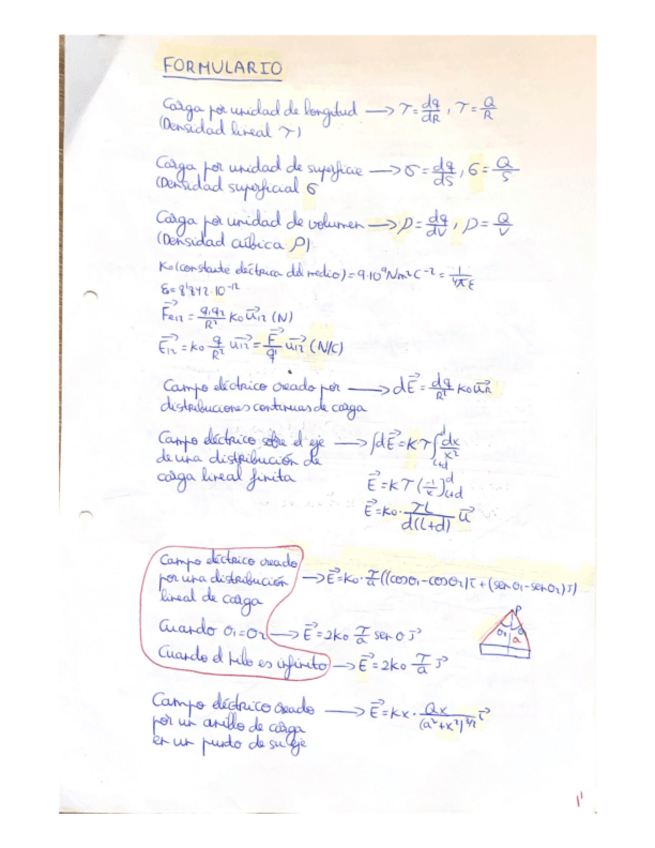 FORMULARIO
Carga por unidad de longitud → τ = dq/dR, τ = Q/R
(Densidad lineal τ)
Carga por unidad de superficie → σ = dq/dS, σ = Q/S
(Densidad superficial σ
Carga por unidad de volumen → ρ = dq/dV, ρ = Q/V
(Densidad cúbica ρ)
K₀ (constante eléctrica del medio) = 9·10⁹ Nm²C⁻² = 1/4πε
ε₀ = 8'842·10⁻¹²
F⃗e₁₂ = q₁q₂/R² K₀ u⃗₁₂ (N)
E⃗₁₂ = K₀ q/R² u⃗₁₂ = F⃗/q' u⃗₁₂ (N/C)
Campo eléctrico creado por → dE⃗ = dq/R² K₀ u⃗R
distribuciones continuas de carga
Campo eléctrico sobre el eje → ∫dE⃗ = Kτ ∫ dx/x²
de una distribución de
carga lineal finita
E⃗ = Kτ (-1/x)
E⃗ = K₀· τL/d(L+d) u⃗
Campo eléctrico creado
por una distribución → E⃗ = K₀· τ/a ((cosθ₁-cosθ₂)i⃗ + (senθ₁-senθ₂)j⃗)
lineal de carga
Cuando θ₁=θ₂ → E⃗ = 2K₀ τ/a senθ j⃗
Cuando el hilo es infinito → E⃗ = 2K₀ τ/a j⃗
P
θ₁
a
Campo eléctrico creado → E⃗ = Kx· Qx/(a²+x²)^3/2 i⃗
por un anillo de carga
en un punto de su eje
1'